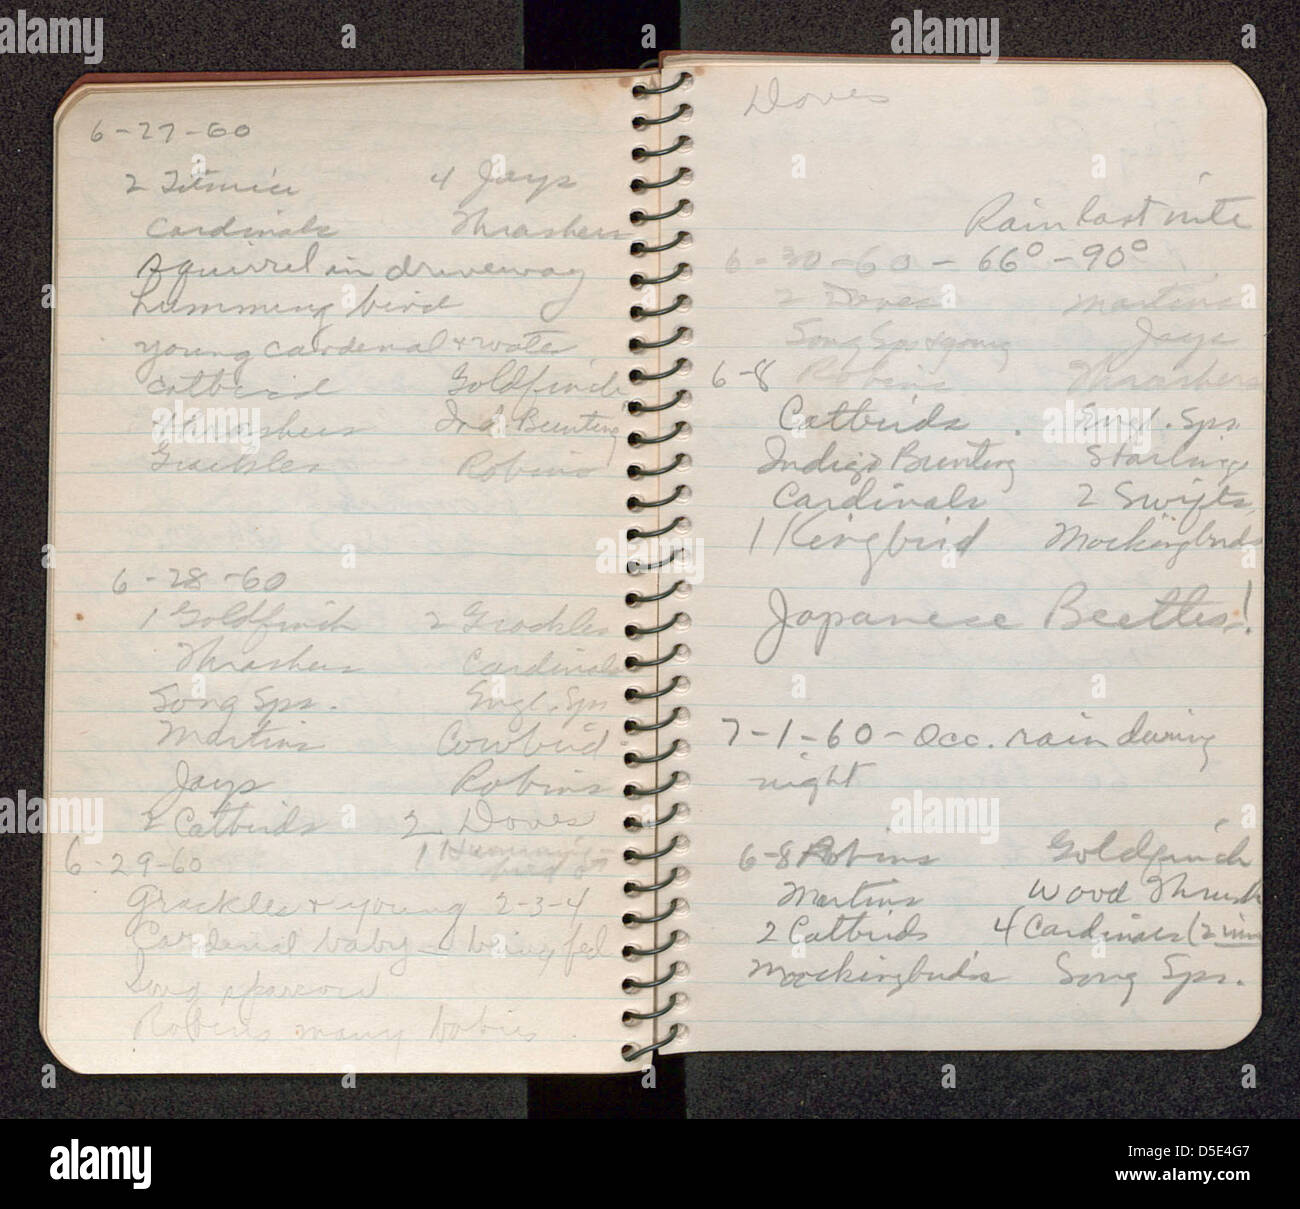 6-27-60
2 Titmice 4 Jays
Cardinals Thrashers
Squirrel in driveway
Humming bird
young cardenal + water
Catbird Goldfinch
Thrashers Ind. Bunting
Grackles Robins
6-28-60
1 Goldfinch 2 Grackles
Thrashers Cardinals
Song Sps. Engl. Sps
Martins Cowbird
Jays Robins
2 Catbirds 2 Doves
1 Humming-
bird
6-29-60
Grackles + young 2-3-4
Cardenal baby - being fed
Song sparrow
Robins many babies
Doves
Rain last nite
6-30-60 - 66° - 90°
2 Doves Martins
Song Sps + young Jays
6-8 Robins Thrashers
Catbirds Engl. Sps.
Indigo Bunting Starlings
Cardinals 2 Swifts
1 Kingbird Mockingbirds
Japanese Beetles!
7-1-60 - Occ. rain during
night
6-8 Robins Goldfinch
Martins Wood Thrush
2 Catbirds 4 Cardinals (2 imm
Mockingbirds Song Sps.
alamy
a
alamy
Image ID: D5E4G7
www.alamy.com